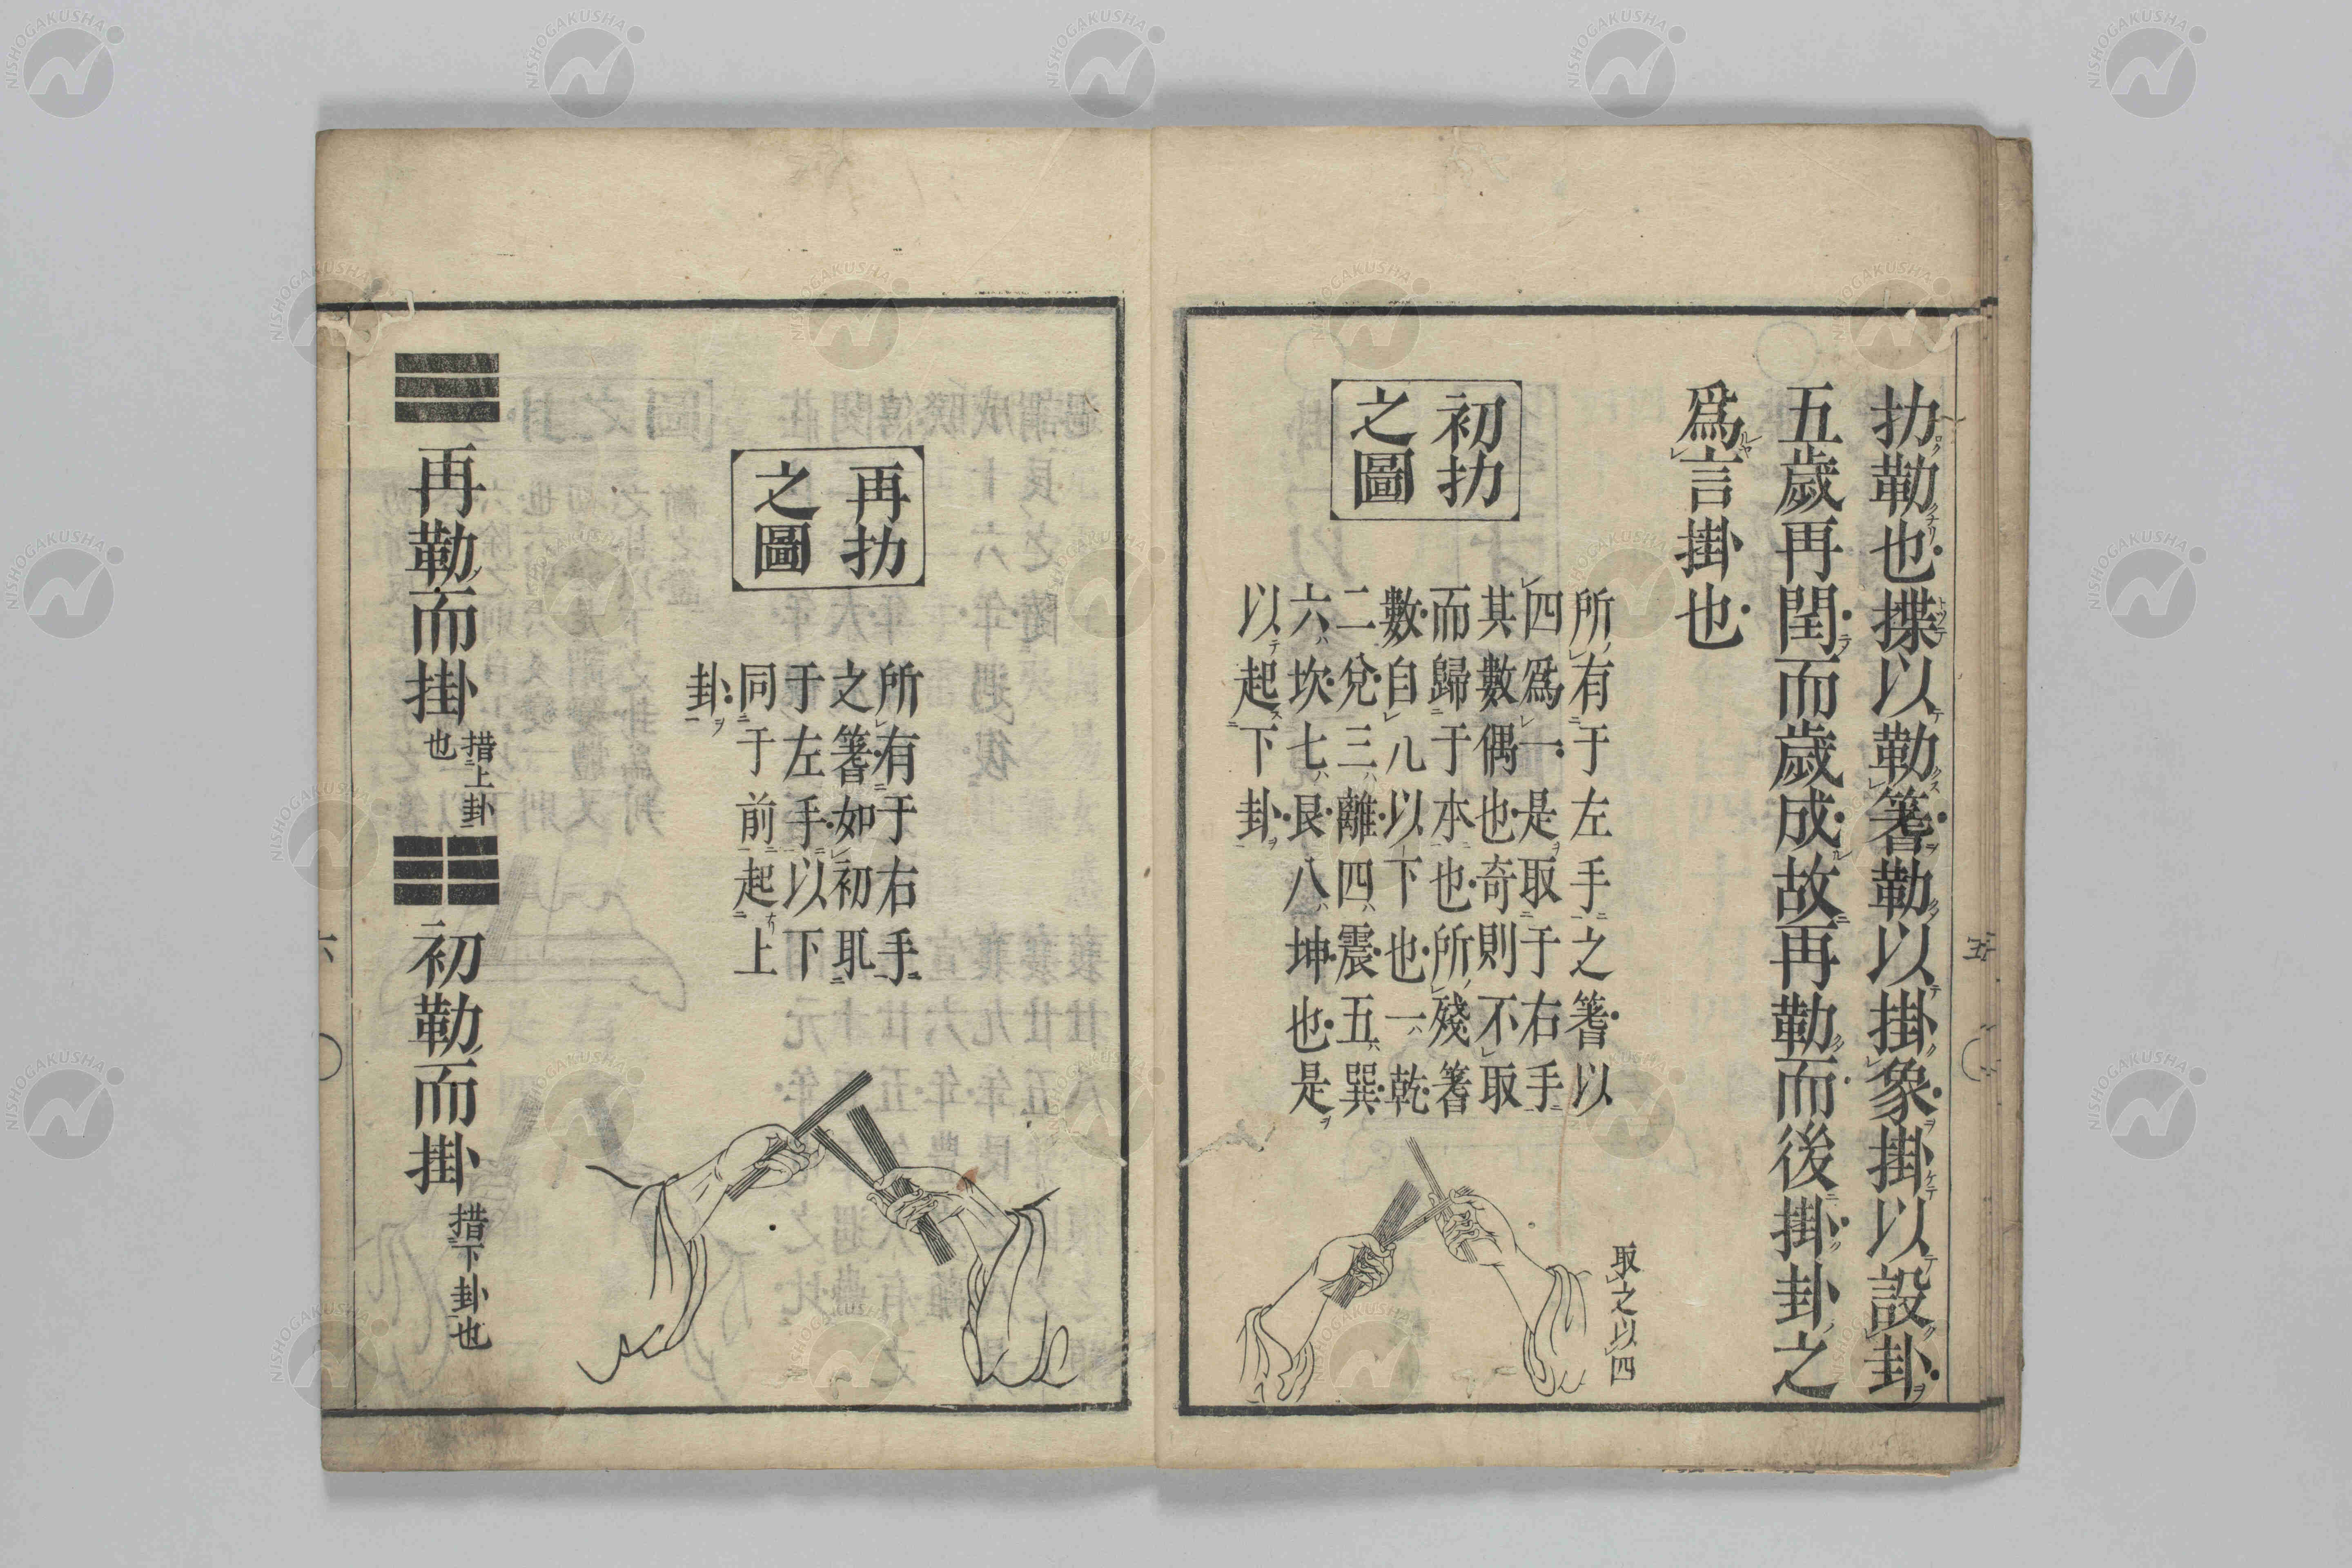 扐勒也揲以勒蓍勒以掛象掛以設卦
五歲再閏而歲成故再勒而後掛卦之
爲言掛也
初扐
之圖
所有于左手之蓍以
四爲一是取于右手
其數偶也奇則不取
而歸于本也所殘蓍
數自八以下也一乾
二兌三離四震五巽
六坎七艮八坤也是
以起下卦
取之以四
五
再扐
之圖
所有于右手
之蓍如初取
于左手以下
同于前起上
卦
☰再勒而掛措上卦也☷初勒而掛措下卦也
六
NISHOGAKUSHA